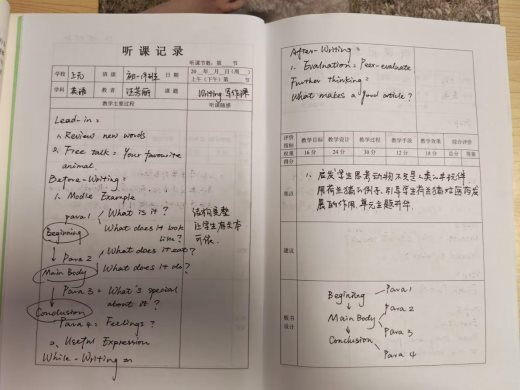 听课记录
听课节数：第 节
学校 上元 班级 初一 日期 20 年 月 日（周 ）
上午（下午）第 节
学科 英语 教者 课题 Writing 写作课
教学主要过程 听课随感
Lead-in:
1. Review new words
2. Free talk: Your favourite
animal.
Before-Writing:
1. Modle Example
para1 What is it?
Beginning What does it look
like?
Para 2 What does it eat?
Main Body What does it do?
Para 3 = What's special
about it?
Conclusion
Para 4 = Feelings?
2. Useful Expression
While-Writing =
结构完整
让学生有文本
可依.
After-Writing =
1. Evaluation: Peer-evaluate
Further thinking:
What makes a good article?
评价指标 教学目标 教学设计 教学过程 教学手段 教学效果 综合评价
权重 16分 24分 30分 12分 18分 总分 等第
得分
亮点
1. 启发学生思考动物不仅是人类的好伙伴
用荷兰猪的例子,引导学生荷兰猪对国
展的作用.单元主题升华.
建议
板书设计
Beginning Para1
Main Body Para 2
Para 3
Conclusion Para 4